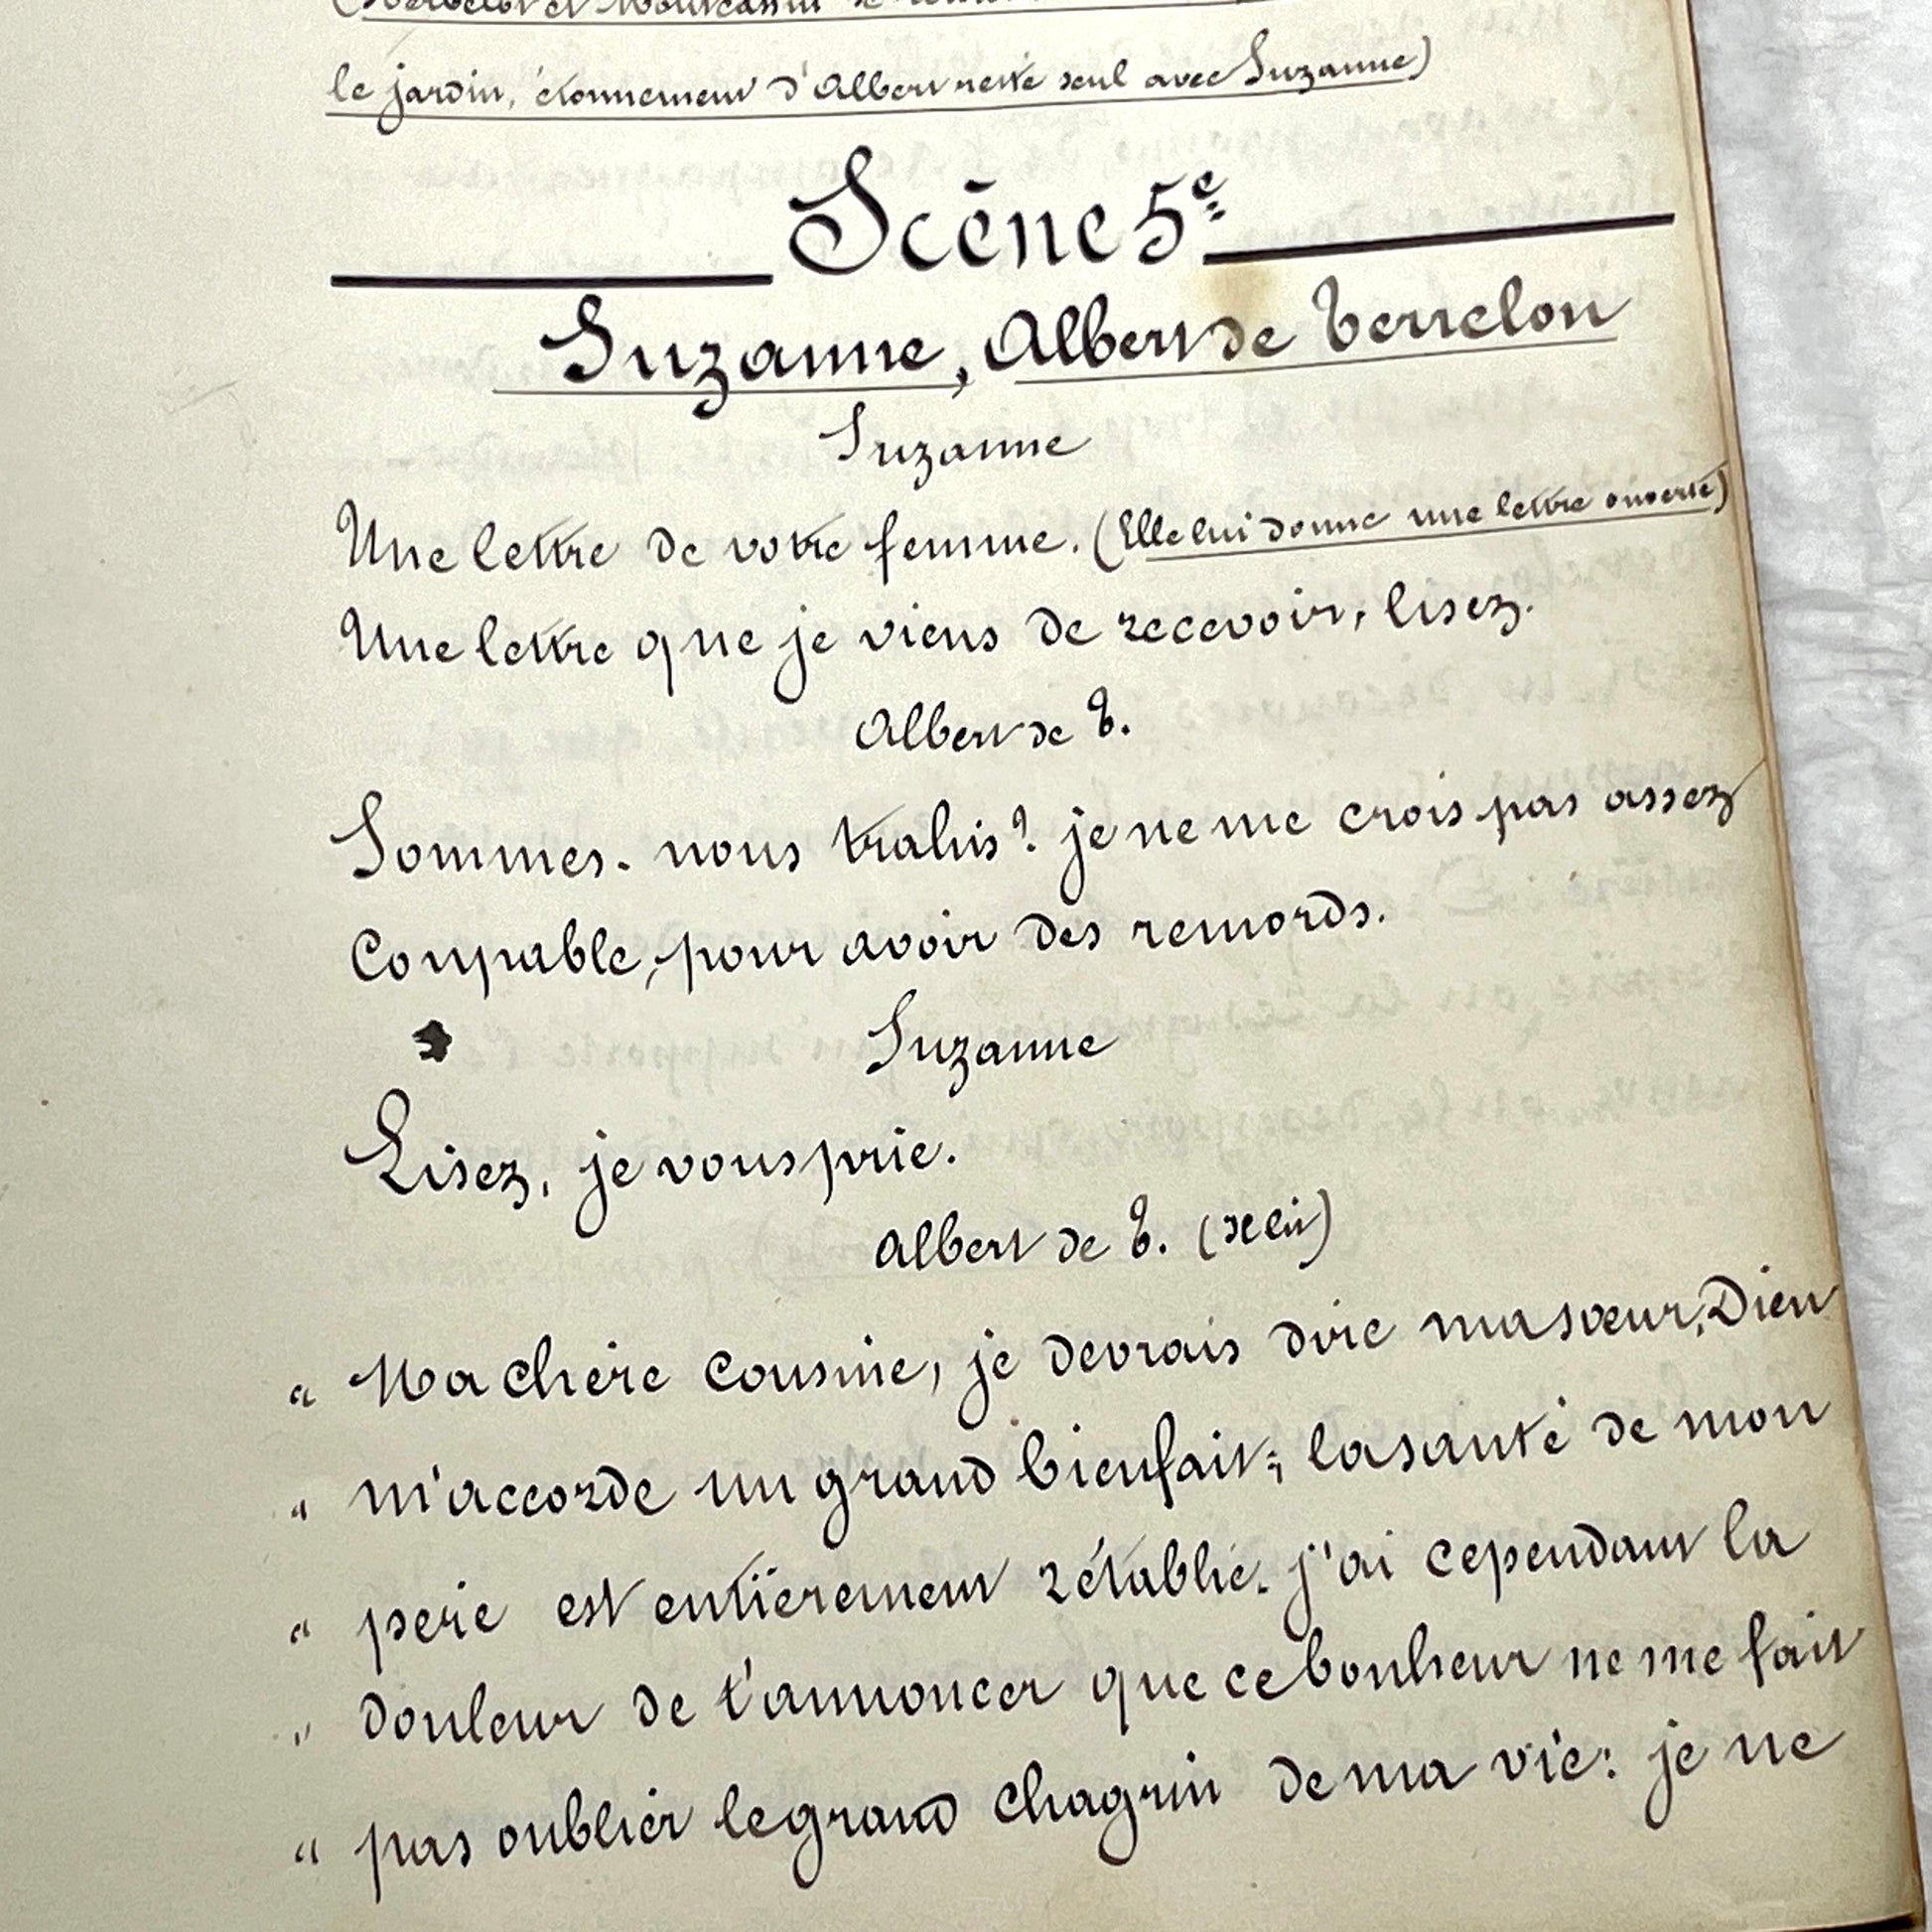 le jardin, étonnement d'Albert resté seul avec Suzanne)
Scène 5e
Suzanne, Albert de Terrelon
Suzanne
Une lettre de votre femme. (Elle lui donne une lettre ouverte)
Une lettre que je viens de recevoir, lisez.
Albert de T.
Sommes-nous trahis? je ne me crois pas assez
Coupable, pour avoir des remords.
Suzanne
Lisez, je vous prie.
Albert de T. (Il lit)
" Ma chère cousine, je devrais dire ma sœur, Dieu
" m'accorde un grand bienfait; la santé de mon
" père est entièrement rétablie. j'ai cependant la
" douleur de t'annoncer que ce bonheur ne me fait
" pas oublier le grand chagrin de ma vie: je ne